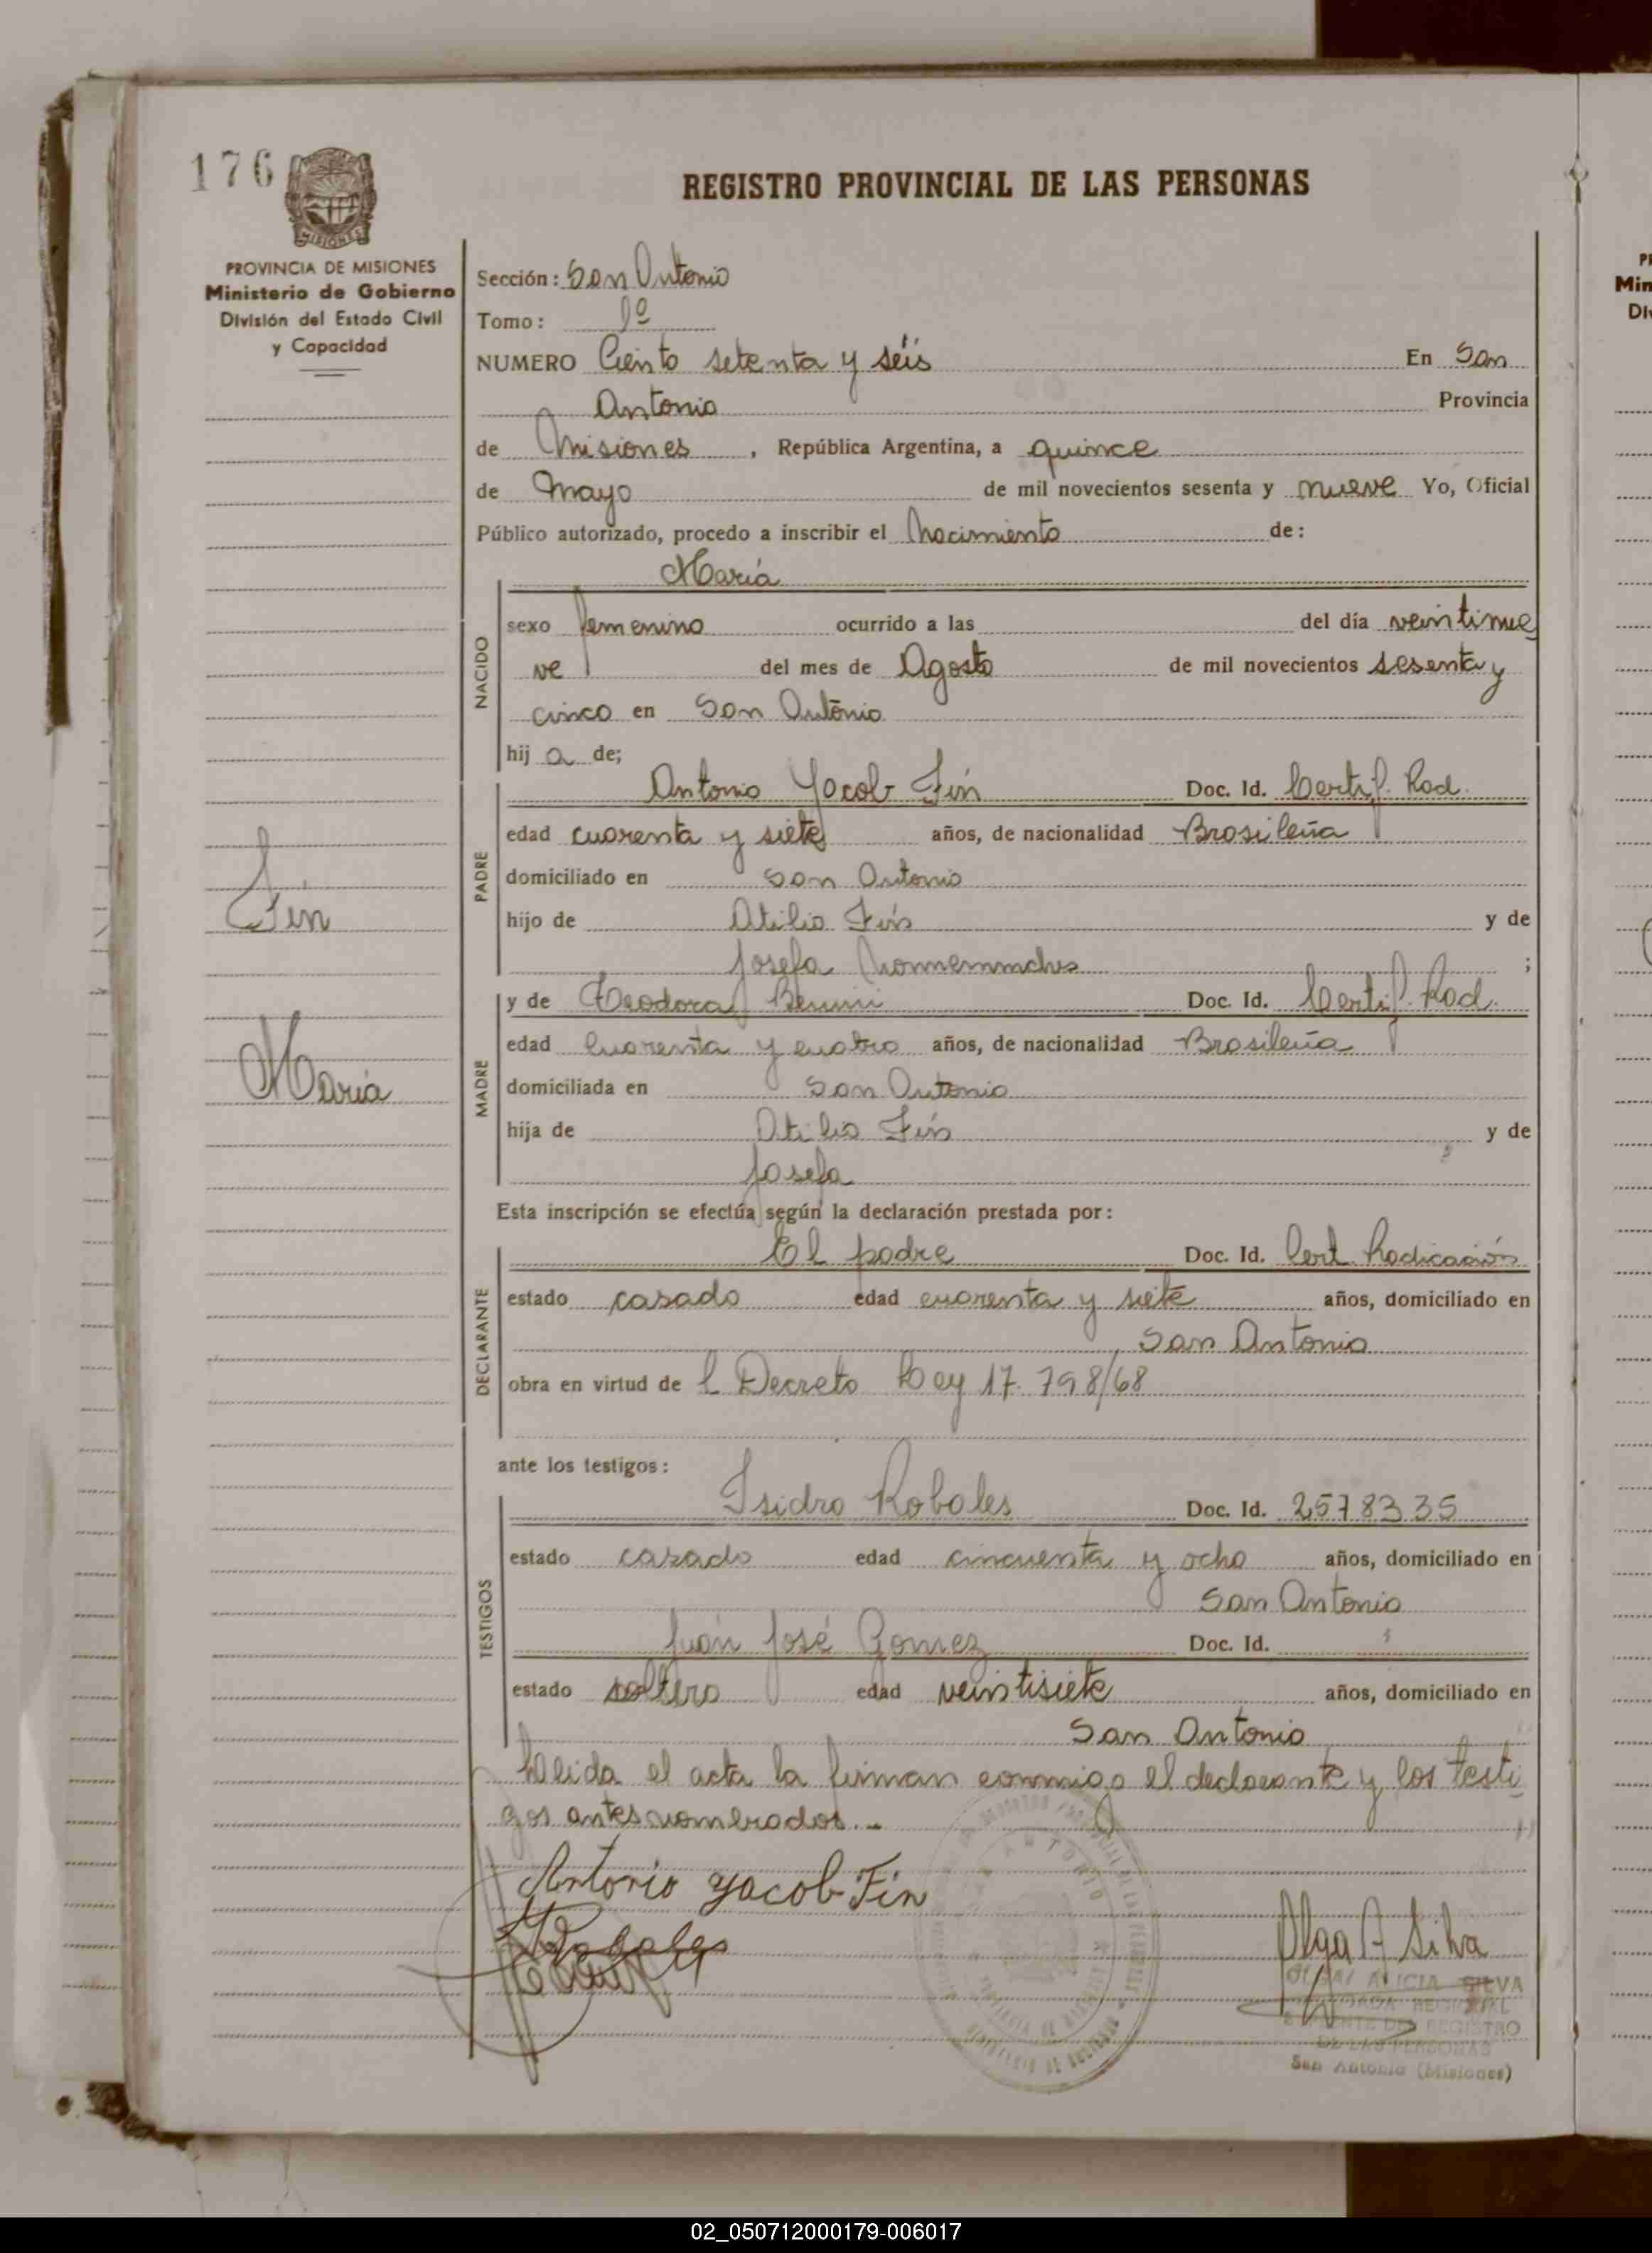 176
MISIONES
REGISTRO PROVINCIAL DE LAS PERSONAS
PROVINCIA DE MISIONES
Ministerio de Gobierno
División del Estado Civil
y Capacidad
Sección: San Antonio
Tomo: 1º
NUMERO Ciento setenta y séis En San
Antonio Provincia
de Misiones, República Argentina, a quince
de Mayo de mil novecientos sesenta y nueve Yo, Oficial
Público autorizado, procedo a inscribir el Nacimiento de:
María
NACIDO
sexo femenino ocurrido a las del día veintinue
ve del mes de Agosto de mil novecientos sesenta y
cinco en San Antonio
hij a de;
PADRE
Antonio Yacob Fin Doc. Id. Certif. Rad.
edad cuarenta y siete años, de nacionalidad Brasileña
domiciliado en San Antonio
hijo de Atilio Fin y de
Josefa ;
Fin
María
MADRE
y de Teodora Doc. Id. Certif. Rad.
edad cuarenta y cuatro años, de nacionalidad Brasileña
domiciliada en San Antonio
hija de Atilio Fin y de
Josefa
Esta inscripción se efectúa según la declaración prestada por:
DECLARANTE
El padre Doc. Id. Cert. Radicación
estado casado edad cuarenta y siete años, domiciliado en
San Antonio
obra en virtud de l Decreto Ley 17.798/68
ante los testigos:
TESTIGOS
Isidro Robales Doc. Id. 2578335
estado casado edad cincuenta y ocho años, domiciliado en
San Antonio
Juan José Gomez Doc. Id.
estado soltero edad veintisiete años, domiciliado en
San Antonio
Leida el acta la firman conmigo el declarante y los testi
gos antes nombrados.-
Antonio Yacob Fin
Robales
Olga A Silva
OLGA ALICIA SILVA
DEL REGISTRO
DE LAS PERSONAS
San Antonio (Misiones)
02_050712000179-006017